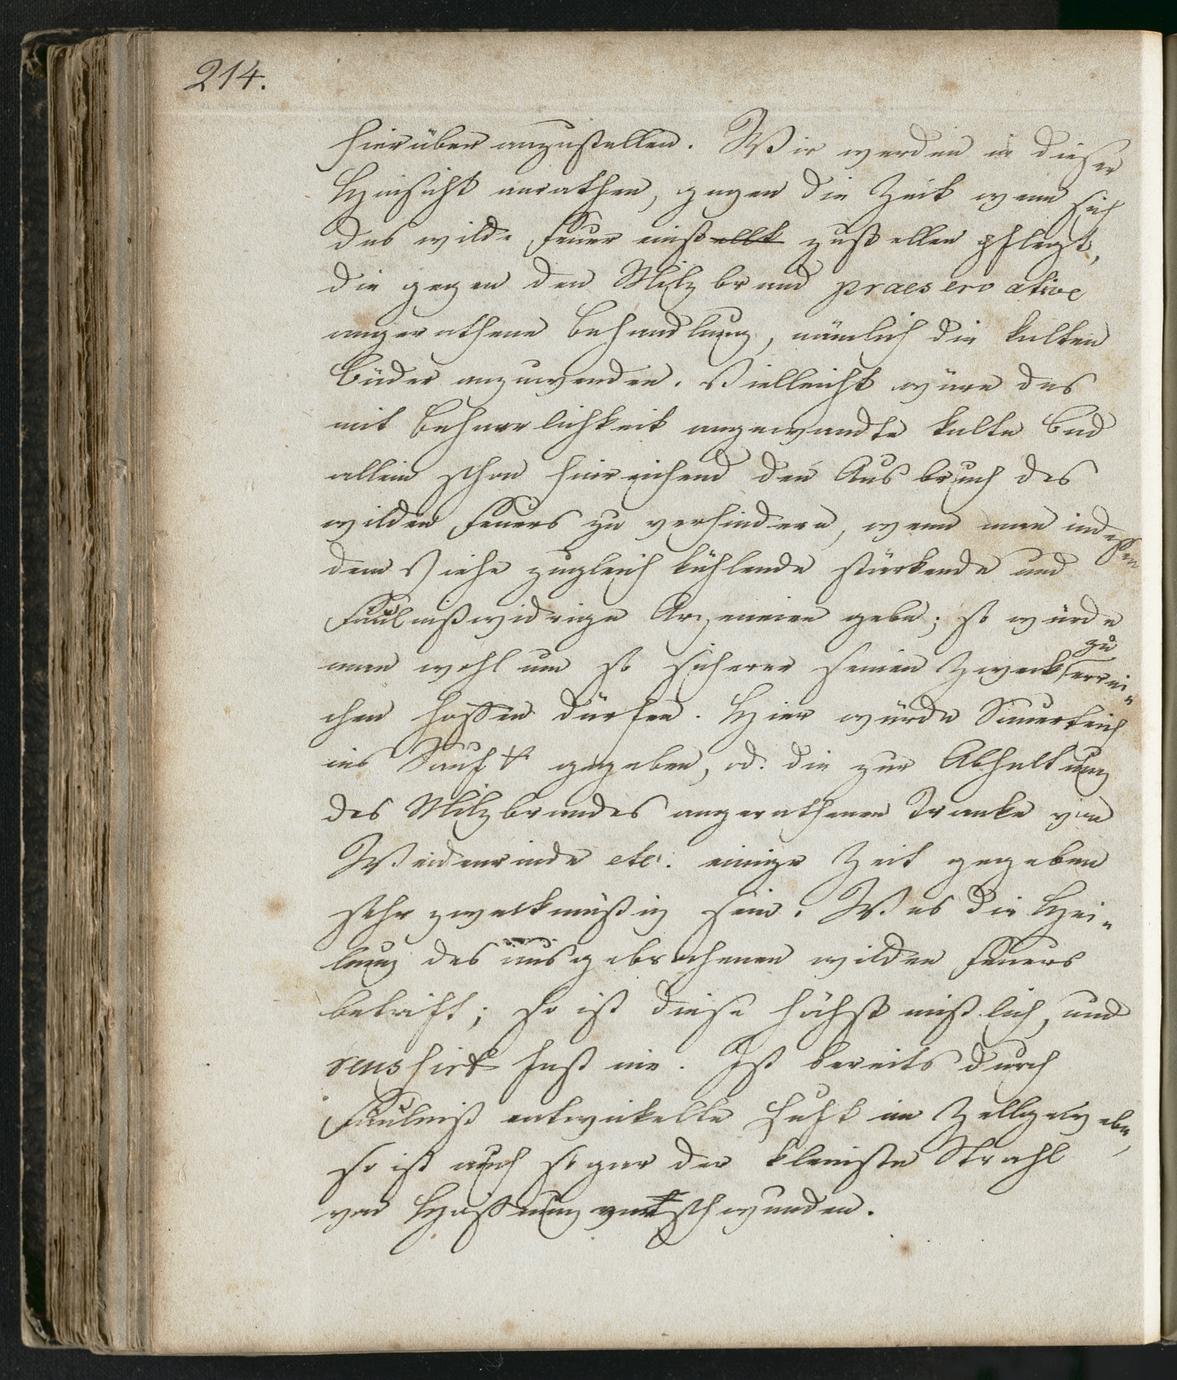 214.
hierüber anzustellen. Wir werden in dieser
Hinsicht anrathen, gegen die Zeit wenn sich
das wilde Feuer einzustellen pflegt,
die gegen den Milzbrand praeservative
angerathene Behandlung, nämlich die kalten
Bäder anzuwenden. Vielleicht wäre das
mit Beharrlichkeit angewandte kalte Bad
allein schon hinreichend den Ausbruch des
wilden Feuers zu verhindern, wenn man indeßen
dem Viehe zugleich kühlende stärkende und
Fäulnißwidrige Arzeneien gebe; so würde
man wohl um so sicherer seinen Zweck zu errei-
chen hoffen dürfen. Hier würde Sauerteich
ins Sauft gegeben, od. die zur Abhaltung
des Milzbrandes angerathenen Tranke von
Weidenrinde etc. einige Zeit gegeben
sehr zweckmäßig sein. Was die Hei-
lung des ausgebrochenen wilden Feuers
betrift; so ist diese höchst mißlich, und
reussirt fast nie. Ist bereits durch
Fäulniß entwickelte Luft im Zellgewebe,
so ist auch sogar der kleinste Strahl
von Hoffnung verschwunden.